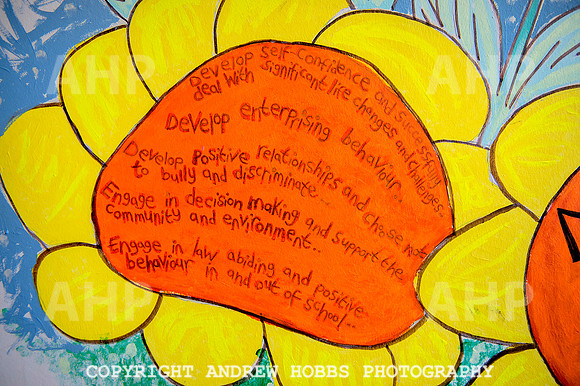 Develop self-confidence and successfully
deal with significant life changes and challenges.
Develop enterprising behaviour..
Develop Positive relationships and choose not
to bully and discriminate...
Engage in decision making and support the
community and environment..
Engage in law abiding and positive
behaviour in and out of school..
AHP
AHP
AHP
AHP
COPYRIGHT ANDREW HOBBS PHOTOGRAPHY